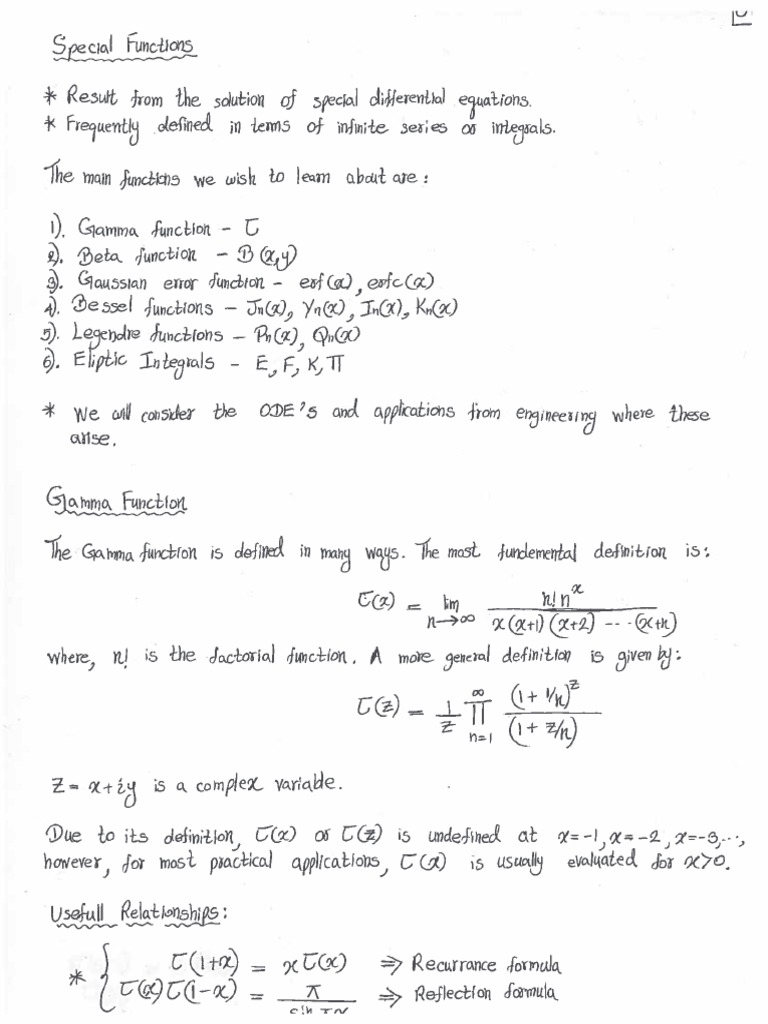 Special Functions
* Result from the solution of special differential equations.
* Frequently defined in terms of infinite series or integrals.
The main functions we wish to learn about are:
1). Gamma function - Γ
2). Beta function - B(x,y)
3). Gaussian error function - erf(x), erfc(x)
4). Bessel functions - Jn(x), Yn(x), In(x), Kn(x)
5). Legendre functions - Pn(x), Qn(x)
6). Eliptic Integrals - E, F, K, Π
* We will consider the ODE's and applications from engineering where these
arise.
Gamma Function
The Gamma function is defined in many ways. The most fundemental definition is:
Γ(x) = lim n→∞ n! n^x / x(x+1)(x+2) ---- (x+n)
where, n! is the factorial function. A more general definition is given by:
Γ(z) = 1/z ∏ n=1 ∞ (1 + 1/n)^z / (1 + z/n)
z = x+iy is a complex variable.
Due to its definition, Γ(x) or Γ(z) is undefined at x=-1, x=-2, x=-3,...,
however, for most practical applications, Γ(x) is usually evaluated for x>0.
Usefull Relationships:
* { Γ(1+x) = xΓ(x) ⇒ Recurrance formula
Γ(x)Γ(1-x) = π / ⇒ Reflection formula